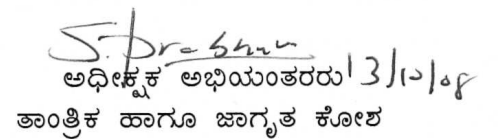 S. Prabhu
ಅಧೀಕ್ಷಕ ಅಭಿಯಂತರರು 13/10/08
ತಾಂತ್ರಿಕ ಹಾಗೂ ಜಾಗೃತ ಕೋಶ